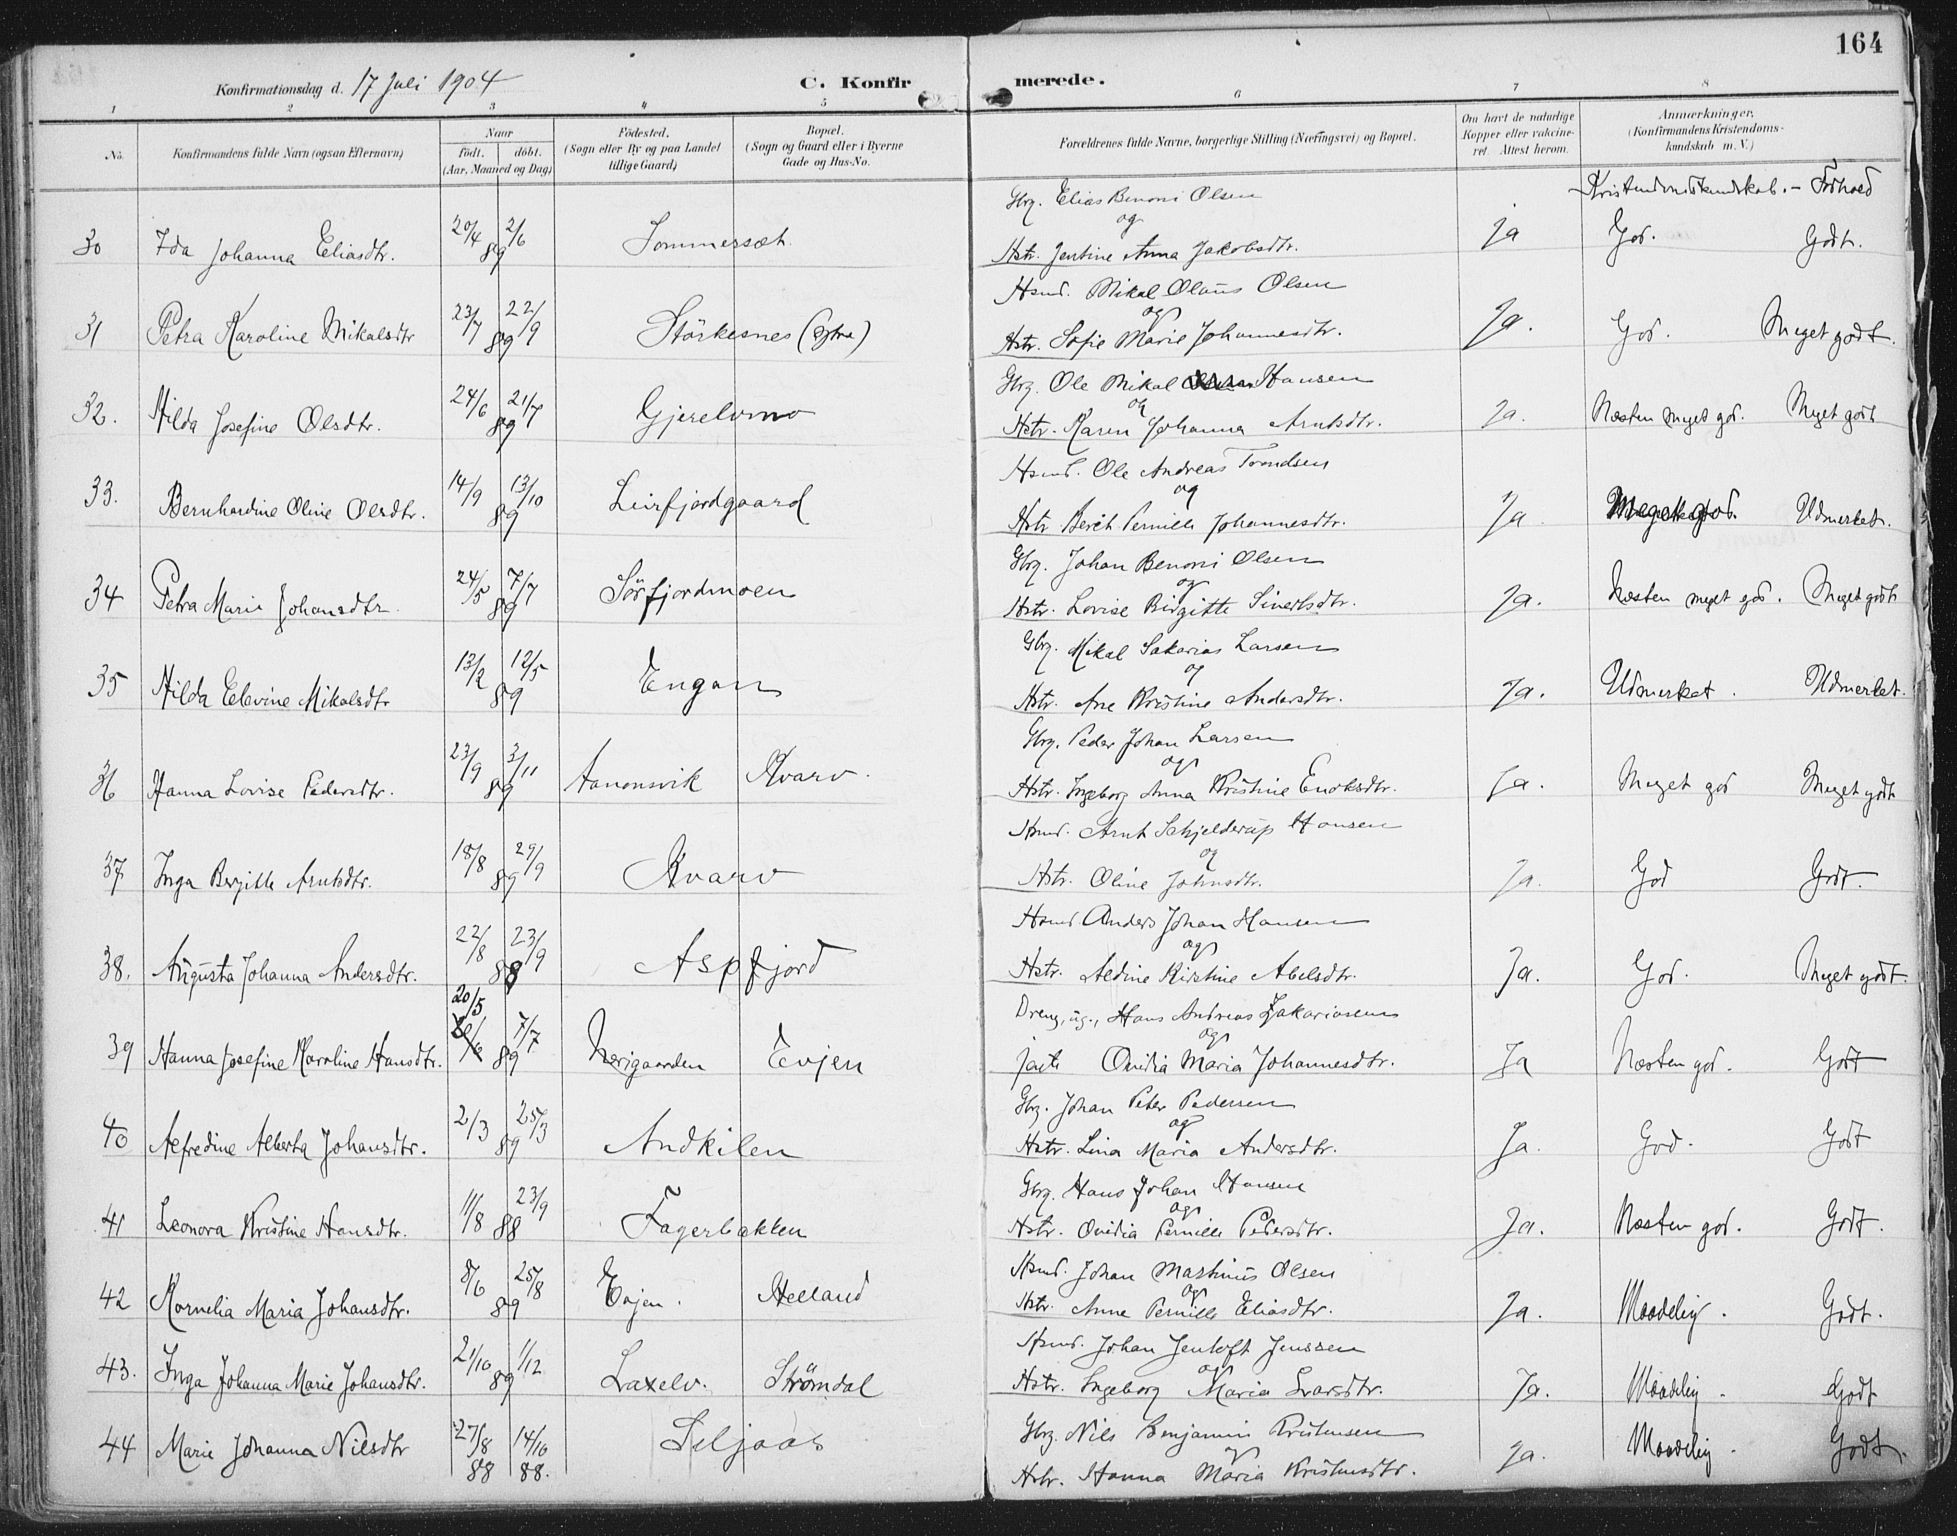 164
Konfirmationsdag d. 17 Juli 1904 C. Konfirmerede.
1 2 3 4 5 6 7 8
No. Konfirmandens fulde Navn (ogsaa Efternavn) Naar født. døbt. (Aar, Maaned og Dag) Fødested. (Sogn eller By og paa Landet tillige Gaard) Bopæl. (Sogn og Gaard eller i Byerne Gade og Hus-No. Forældrenes fulde Navne, borgerlige Stilling (Næringsvei) og Bopæl. Om havt de naturlige Kopper eller vakcineret. Attest herom. Anmærkninger, (Konfirmandens Kristendomskundskab m. V.)
Kristendomskundskab. - Forhold
Gbrg. Elias Benoni Olsen
og
30 Ida Johanna Eliasdtr. 20/4 2/6 89 Sommersæt Hstr. Jentine Anna Jakobsdtr. ja God. Godt.
Hsmd. Mikal Olaus Olsen
og
31 Petra Karoline Mikalsdtr 23/7 22/9 89 Störkesnes (Ytre) Hstr. Sofie Marie Johannesdtr. Ja. God. Meget godt.
Gbrg. Ole Mikal Hansen
og
32. Hilda Josefine Olsdtr. 24/6 21/7 89 Gjerelvmo Hstr. Karen Johanna Arntsdtr. Ja. Næsten meget god. Meget godt
Hsmd. Ole Andreas Trondsen
og
33. Bernhardine Oline Olsdtr. 14/9 13/10 89 Leirfjordgaard Hstr Berit Pernille Johannesdtr. Ja. Meget god. Udmerket.
Gbrg. Johan Benoni Olsen
og
34 Petra Marie Johansdtr. 24/5 7/7 89 Sörfjordmoen Hstr. Lovise Birgitte Sivertsdtr. Ja. Næsten meget god. Meget godt
Gbrg. Mikal Sakarias Larsen
og
35 Hilda Elevine Mikalsdtr 13/2 12/5 89 Engan Hstr. Ane Kristine Andersdtr. Ja. Udmerket. Udmerket.
Gbrg. Peder Johan Larsen
og
36 Hanna Lovise Pedersdtr. 23/9 3/11 89 Aanonsvik Kvarv. Hstr. Ingeborg Anna Kristine Enoksdtr. Ja. Meget god Meget godt
Hsmd. Arnt Schjelderup Hansen
og
37 Inga Bergitte Arntsdtr. 18/8 29/9 89 Kvarv Hstr. Oline Johnsdtr. Ja. God Godt.
Hsmd Anders Johan Hansen
og
38. Augusta Johanna Andersdtr. 22/8 23/9 88 Aspfjord Hstr. Aldine Kirstine Abelsdtr. Ja. God. Meget godt.
20/5
Dreng, ug., Hans Andreas Zakariasen
og
39 Hanna Josefine Karoline Hansdtr. 7/7 89 Nerigaarden Evjen Ovidia Maria Johannesdtr. Ja Næsten god. Godt
Gbrg. Johan Peter Pedersen
og
40 Alfredine Alberta Johansdtr. 2/3 25/3 89 Andkilen Hstr. Lina Maria Andersdtr. Ja. God. Godt
Gbrg. Hans Johan Hansen
og
41 Leonora Kristine Hansdtr. 11/8 23/9 88 Fagerbakken Hstr. Ovidia Pernille Pedersdtr. Ja. Næsten god. Godt.
Hsmd. Johan Martinus Olsen
og
42 Kornelia Maria Johansdtr. 8/6 25/8 89 Evjen. Helland Hstr. Anne Pernille Eliasdtr. Ja. Maadelig. Godt.
Hsmd. Johan Jentoft Jenssen
og
43. Inga Johanna Marie Johansdtr. 21/10 1/12 89 Laxelv. Strömdal Hstr. Ingeborg Maria Larsdtr. Ja. Maadelig. Godt
Gbrg. Nils Benjamin Kristensen
og
44 Marie Johanna Nilsdtr 27/8 88 14/10 88. Seljaas Hstr. Hanna Maria Kristensdtr. Ja. Maadelig. Godt.